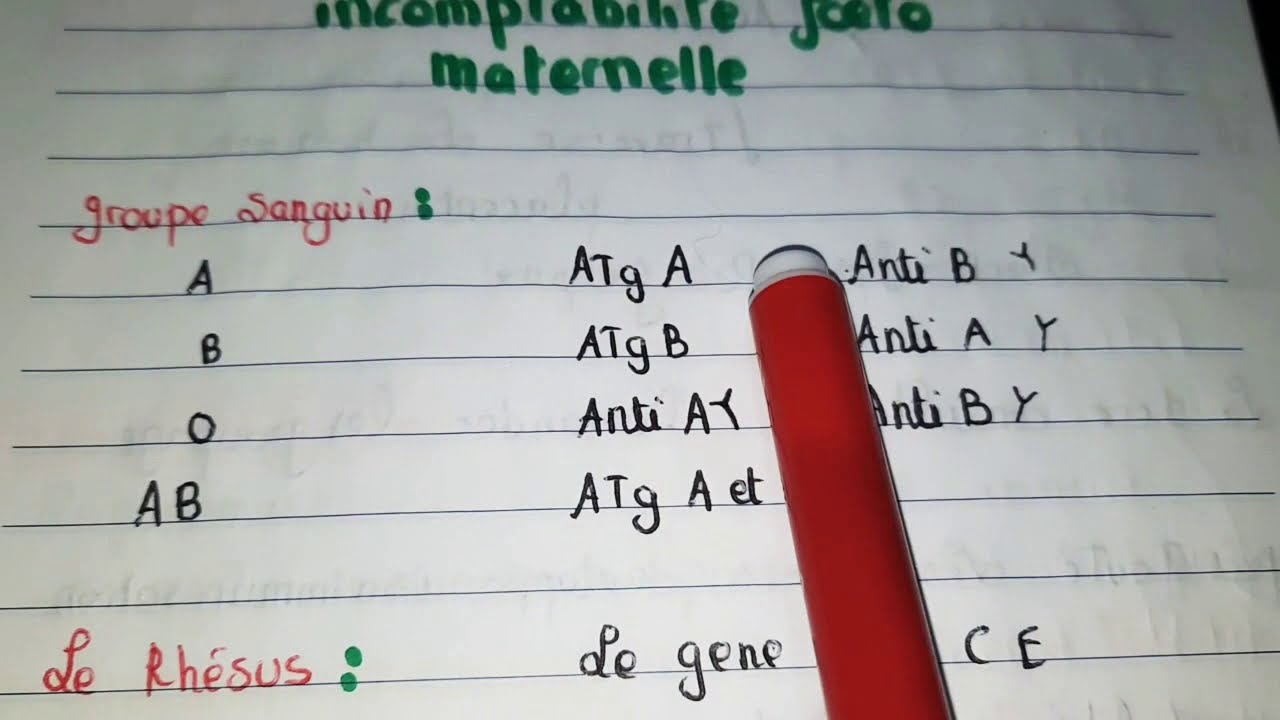 incomptabilité foeto
maternelle
groupe sanguin :
A ATg A Anti B Y
B ATg B Anti A Y
O Anti A Y Anti B Y
AB ATg A et
Le Rhésus : Le gene C E